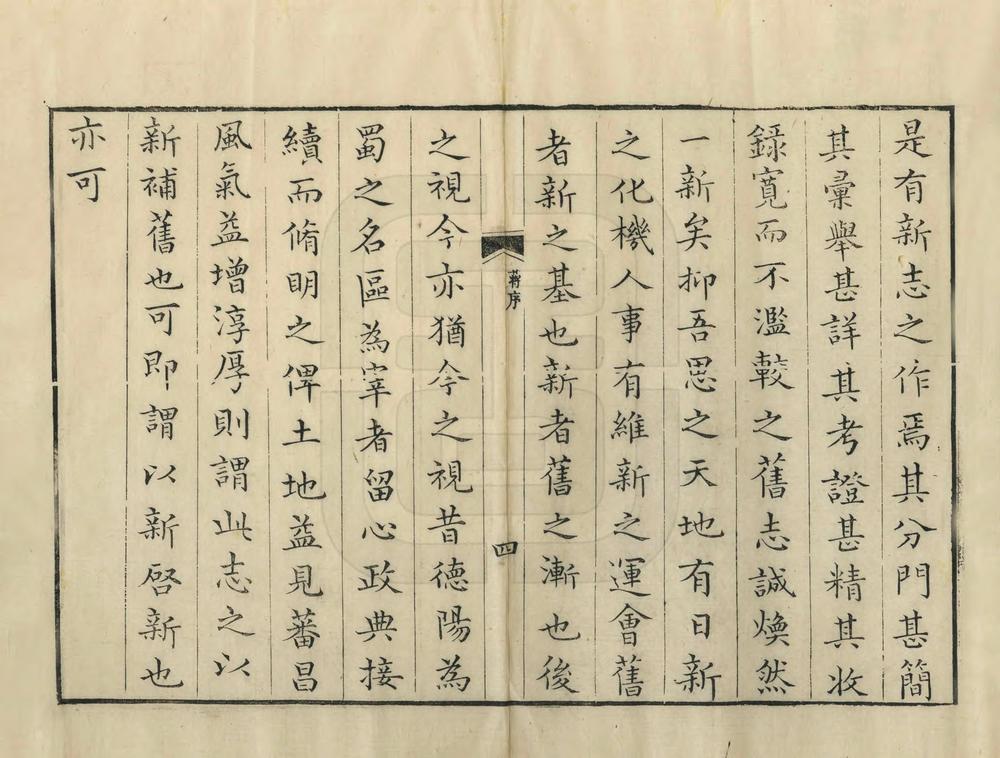 是有新志之作焉其分門甚簡
其彙舉甚詳其考證甚精其收
錄寬而不濫較之舊志誠煥然
一新矣抑吾思之天地有日新
之化機人事有維新之運會舊
者新之基也新者舊之漸也後
蔣序
四
之視今亦猶今之視昔德陽為
蜀之名區為宰者留心政典接
續而脩明之俾土地益見蕃昌
風氣益增淳厚則謂此志之以
新補舊也可即謂以新啓新也
亦可